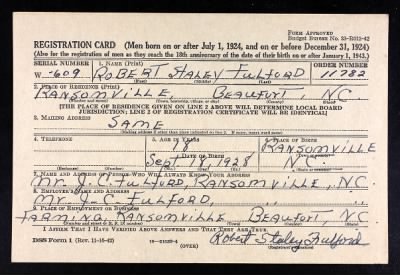 Form Approved
Budget Bureau No. 33-R012-42
REGISTRATION CARD (Men born on or after July 1, 1924, and on or before December 31, 1924)
(Also for the registration of men as they reach the 18th anniversary of the date of their birth on or after January 1, 1943.)
SERIAL NUMBER 1. NAME (Print) ORDER NUMBER
W-609 ROBERT STALEY FULFORD 11782
2. PLACE OF RESIDENCE (Print)
RANSOMVILLE, BEAUFORT, N.C.
(Town, township, village, or city) (County) (State)
[THE PLACE OF RESIDENCE GIVEN ON LINE 2 ABOVE WILL DETERMINE LOCAL BOARD
JURISDICTION; LINE 2 OF REGISTRATION CERTIFICATE WILL BE IDENTICAL]
3. MAILING ADDRESS
SAME
[Mailing address if other than place indicated on line 2. If same, insert word same]
4. TELEPHONE 5. AGE IN YEARS 6. PLACE OF BIRTH
18 RANSOMVILLE
DATE OF BIRTH
Sept 17, 1928 N.C.
7. NAME AND ADDRESS OF PERSON WHO WILL ALWAYS KNOW YOUR ADDRESS
Mr. J. C. FULFORD, RANSOMVILLE, N.C.
8. EMPLOYER'S NAME AND ADDRESS
Mr. J. C. FULFORD, " "
9. PLACE OF EMPLOYMENT OR BUSINESS
FARMING, RANSOMVILLE BEAUFORT, N.C.
I AFFIRM THAT I HAVE VERIFIED ABOVE ANSWERS AND THAT THEY ARE TRUE.
DSS Form 1 (Rev. 11-16-42) (OVER) Robert Staley Fulford